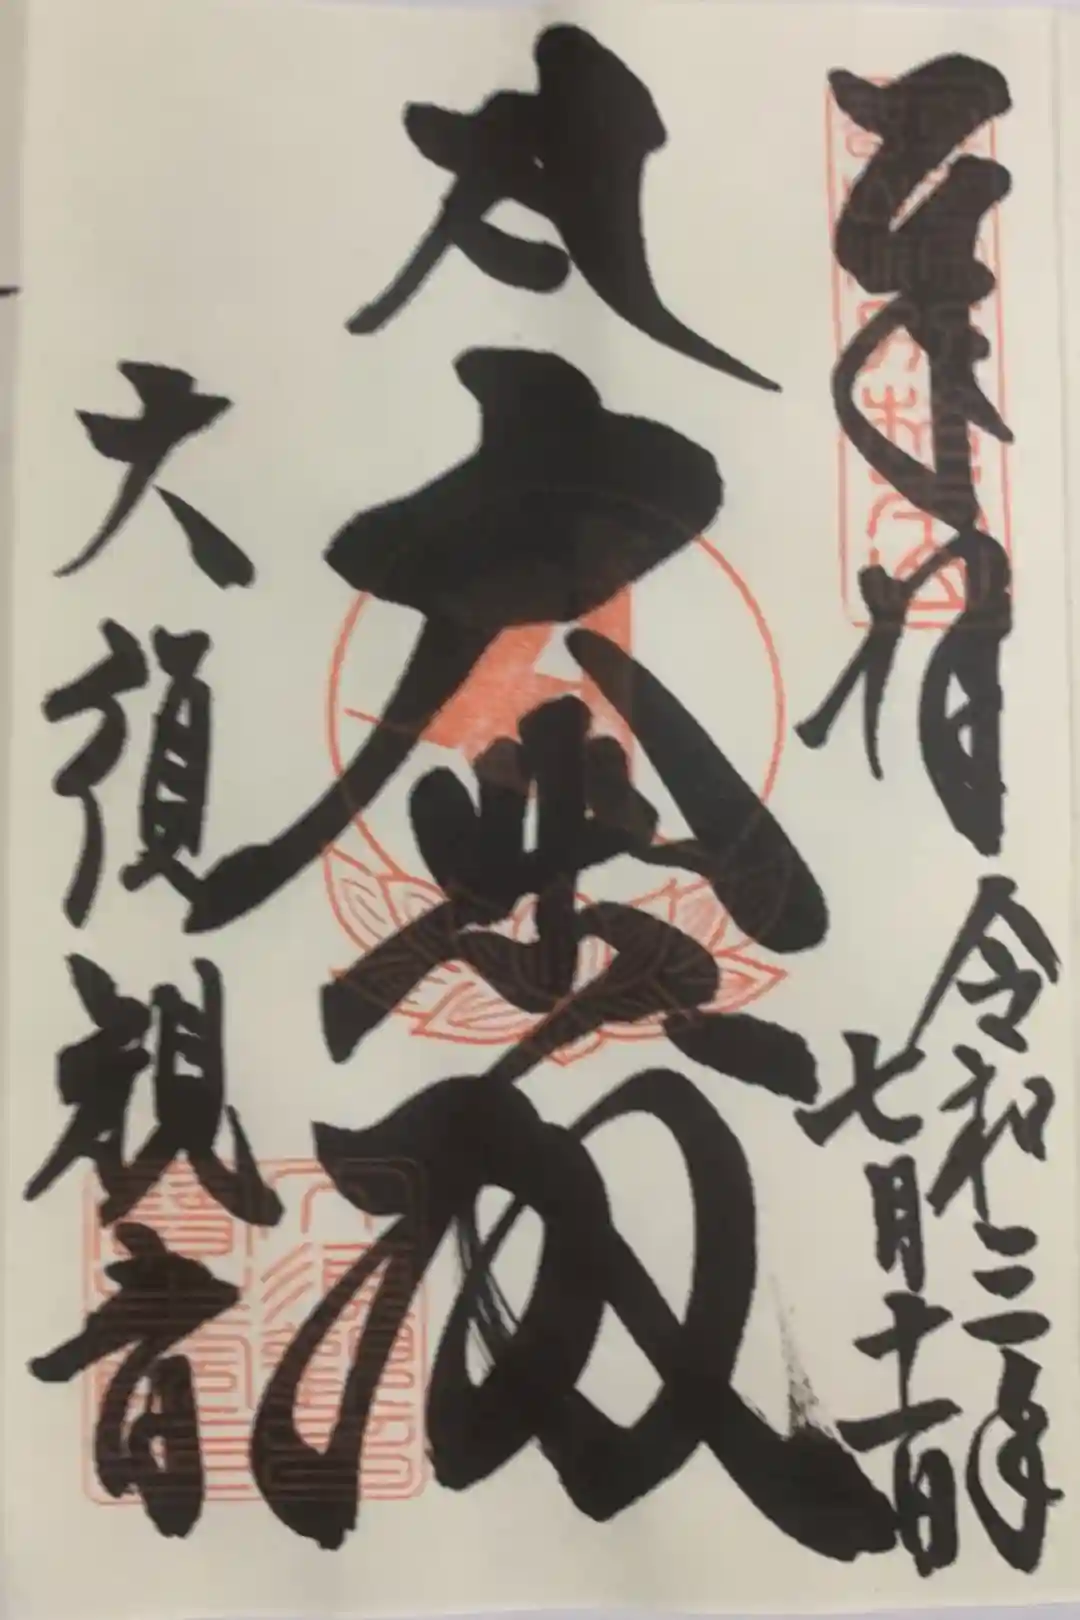 奉拝
令和三年
七月十一日
大悲殿
大須観音